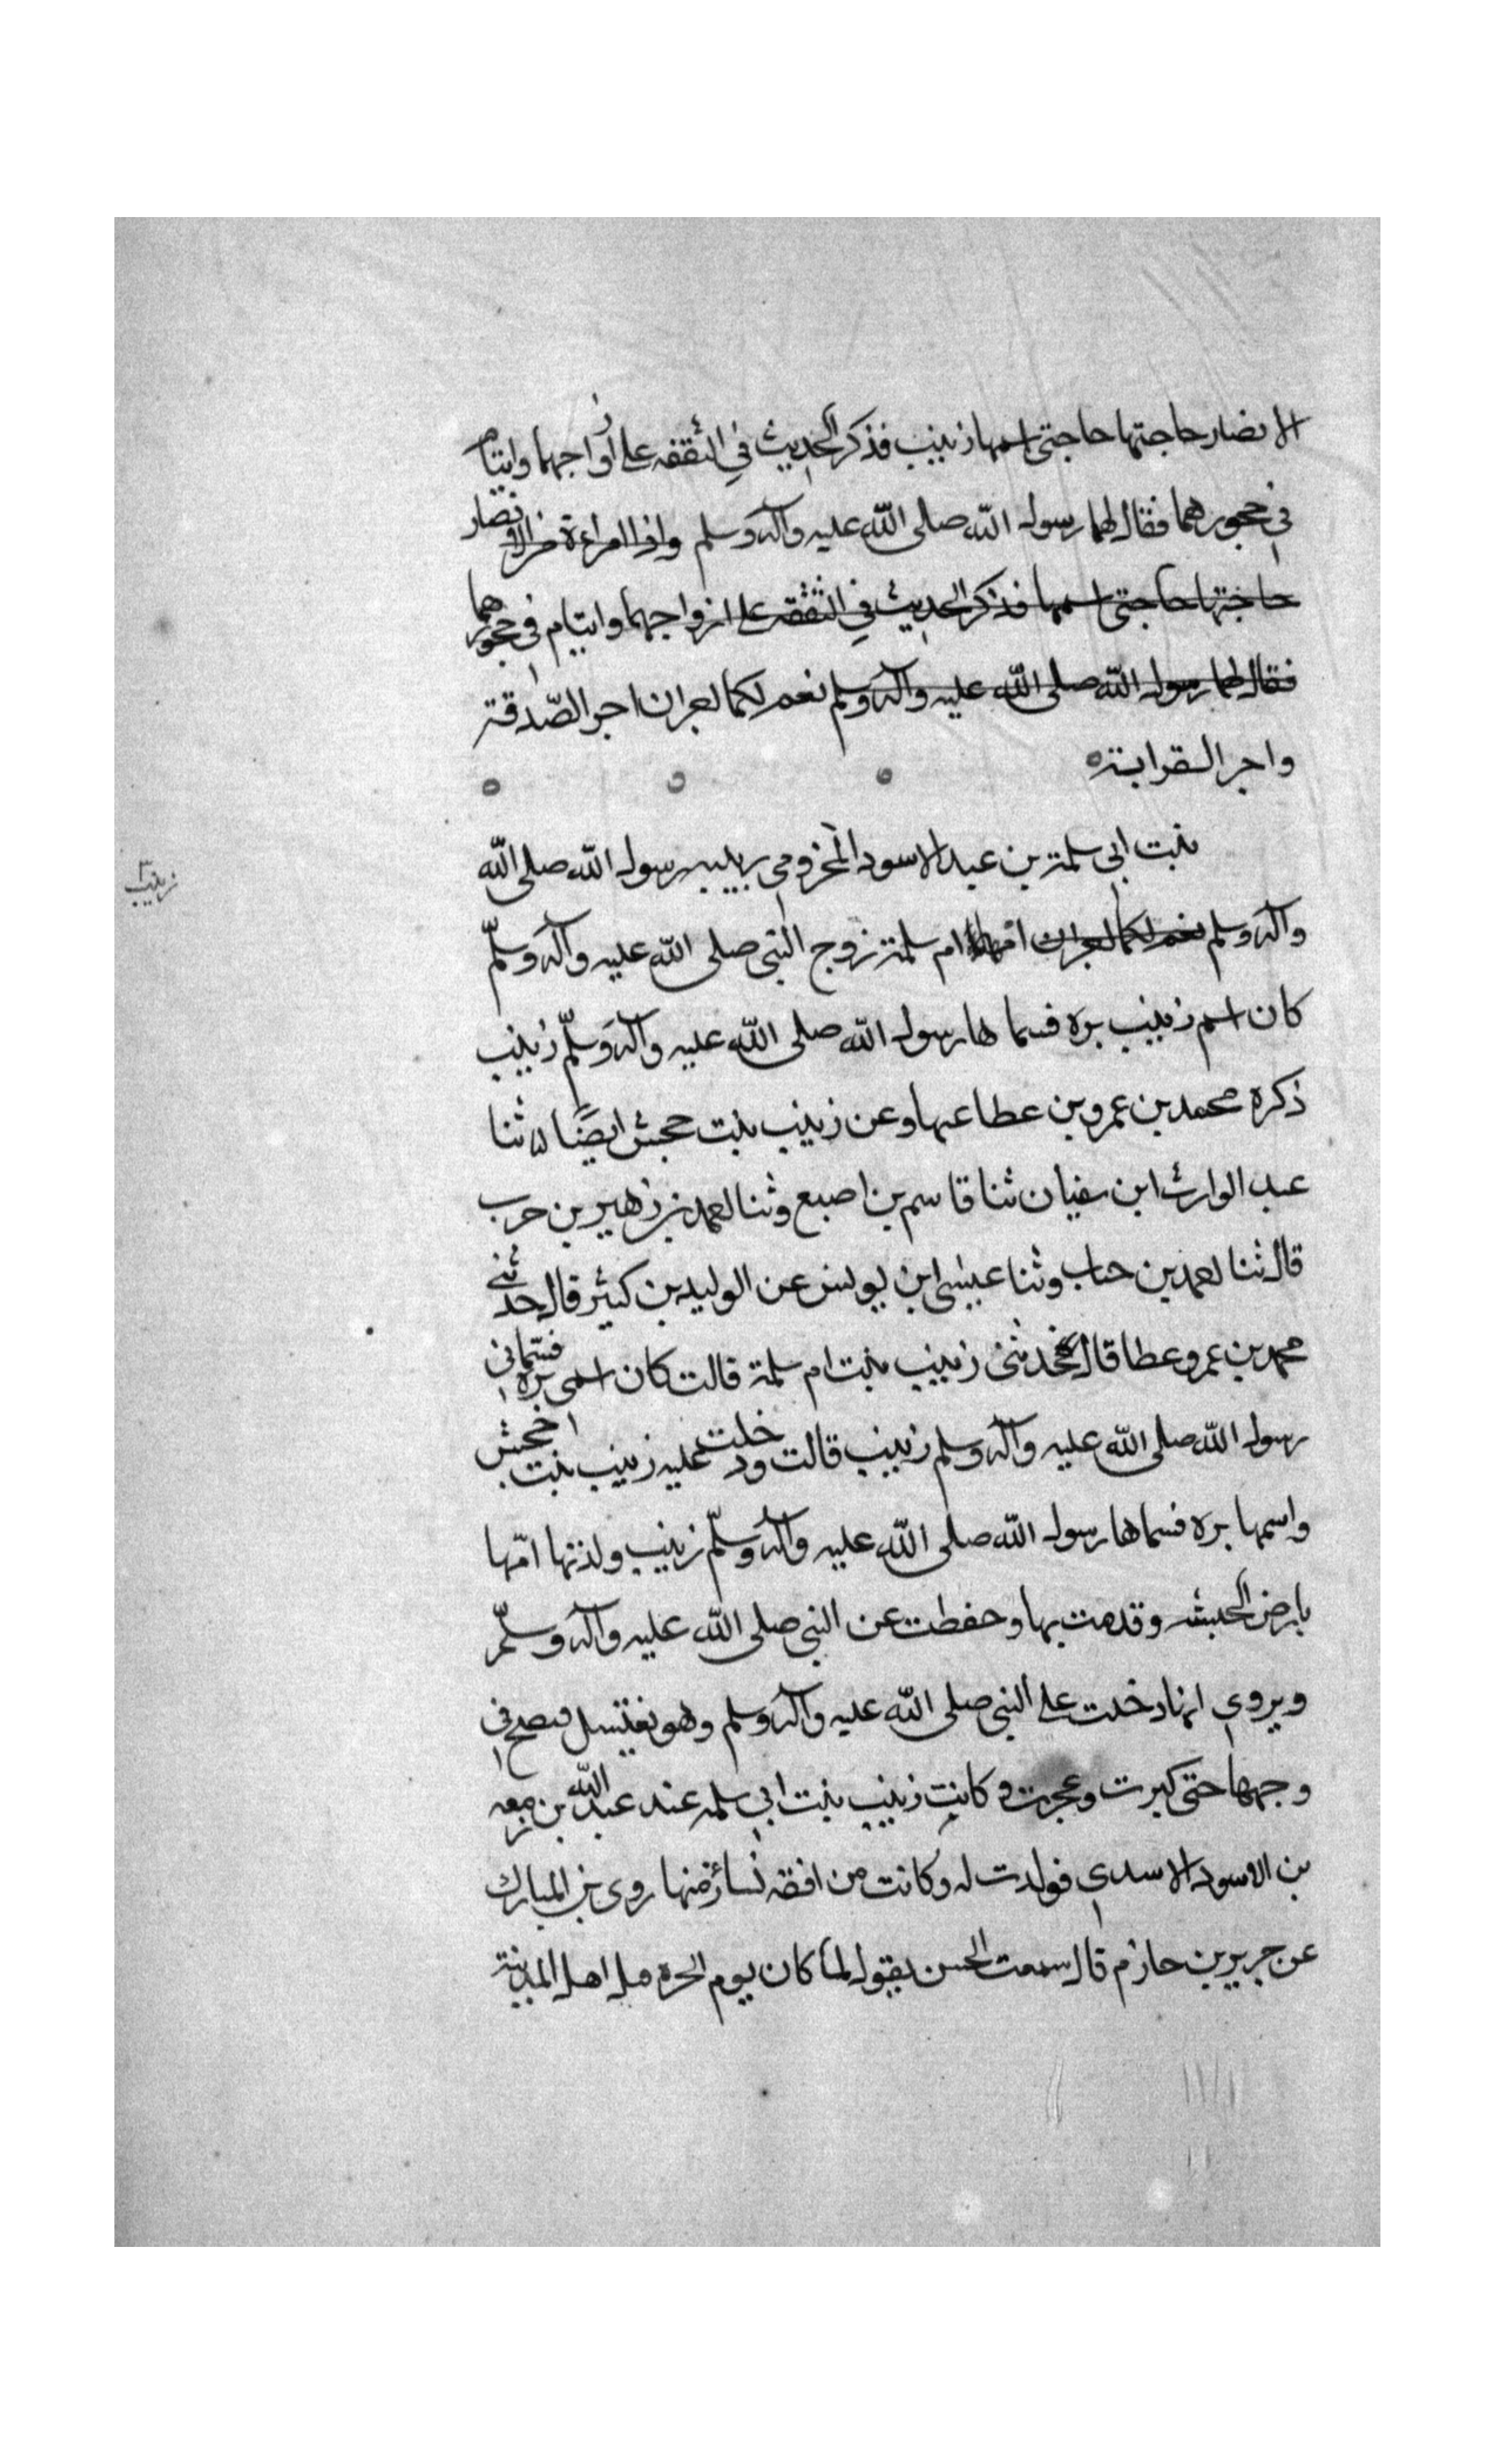 الانصار حاجتها حاجتى اسمها زينب فذكر الحديث في النفقه على ازواجهما وايتام
في حجورهما فقال لهما رسول الله صلى الله عليه وآله وسلم واذا امراءة من الانصار
حاجتها حاجتى اسمها فذكر الحديث في النفقة على ازواجهما وايتام في حجورهما
فقال لهما رسول الله صلى الله عليه وآله وسلم نعم لكما اجران اجر الصّدقة
واجر القرابة
زينب
بنت ابى سلمة بن عبد الاسود المخزومى ربيبه رسول الله صلى الله
وآله وسلم نعم لكما اجران امها ام سلمة زوج النبى صلى الله عليه وآله وسلّم
كان اسم زينب بره فسماها رسول الله صلى الله عليه وآله وسلّم زينب
ذكره محمد بن عمرو بن عطا عنها وعن زينب بنت جحش ايضًا ثنا
عبد الوارث ابن سفيان ثنا قاسم بن اصبع وثنا احمد بن زهير بن حرب
قال ثنا احمد بن جناب وثنا عيسى ابن يونس عن الوليد بن كثير قال حدثنى
محمد بن عمرو عطا قال حدثنى زينب بنت ام سلمة قالت كان اسمى بره فسمّانى
رسول الله صلى الله عليه وآله وسلم زينب قالت ودخلت عليه زينب بنت جحش
واسمها بره فسماها رسول الله صلى الله عليه وآله وسلّم زينب ولدتها امّها
بارض الحبشه وقدمت بها وحفظت عن النبى صلى الله عليه وآله وسلّم
ويروى انها دخلت على النبى صلى الله عليه وآله وسلم وهو يغتسل فنضح فى
وجهها حتى كبرت وعجزت وكانت زينب بنت ابى سلمه عند عبد الله بن زمعه
بن الاسود الاسدى فولدت له وكانت من افقه نساء زمنها روى بن المبارك
عن جرير بن حازم قال سمعت الحسن يقول لما كان يوم الحره قتل اهل المدينة